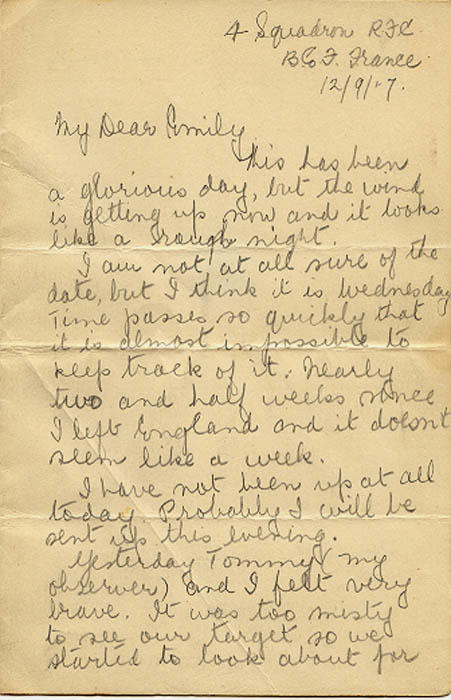 4 Squadron RFC.
B.E.F. France
12/9/17.
My Dear Emily
This has been
a glorious day, but the wind
is getting up now and it looks
like a rough night.
I am not at all sure of the
date, but I think it is Wednesday
Time passes so quickly that
it is almost impossible to
keep track of it. Nearly
two and half weeks since
I left England and it doesn't
seem like a week.
I have not been up at all
today. Probably I will be
sent up this evening.
Yesterday Tommy (my
observer) and I felt very
brave. It was too misty
to see our target so we
started to look about for